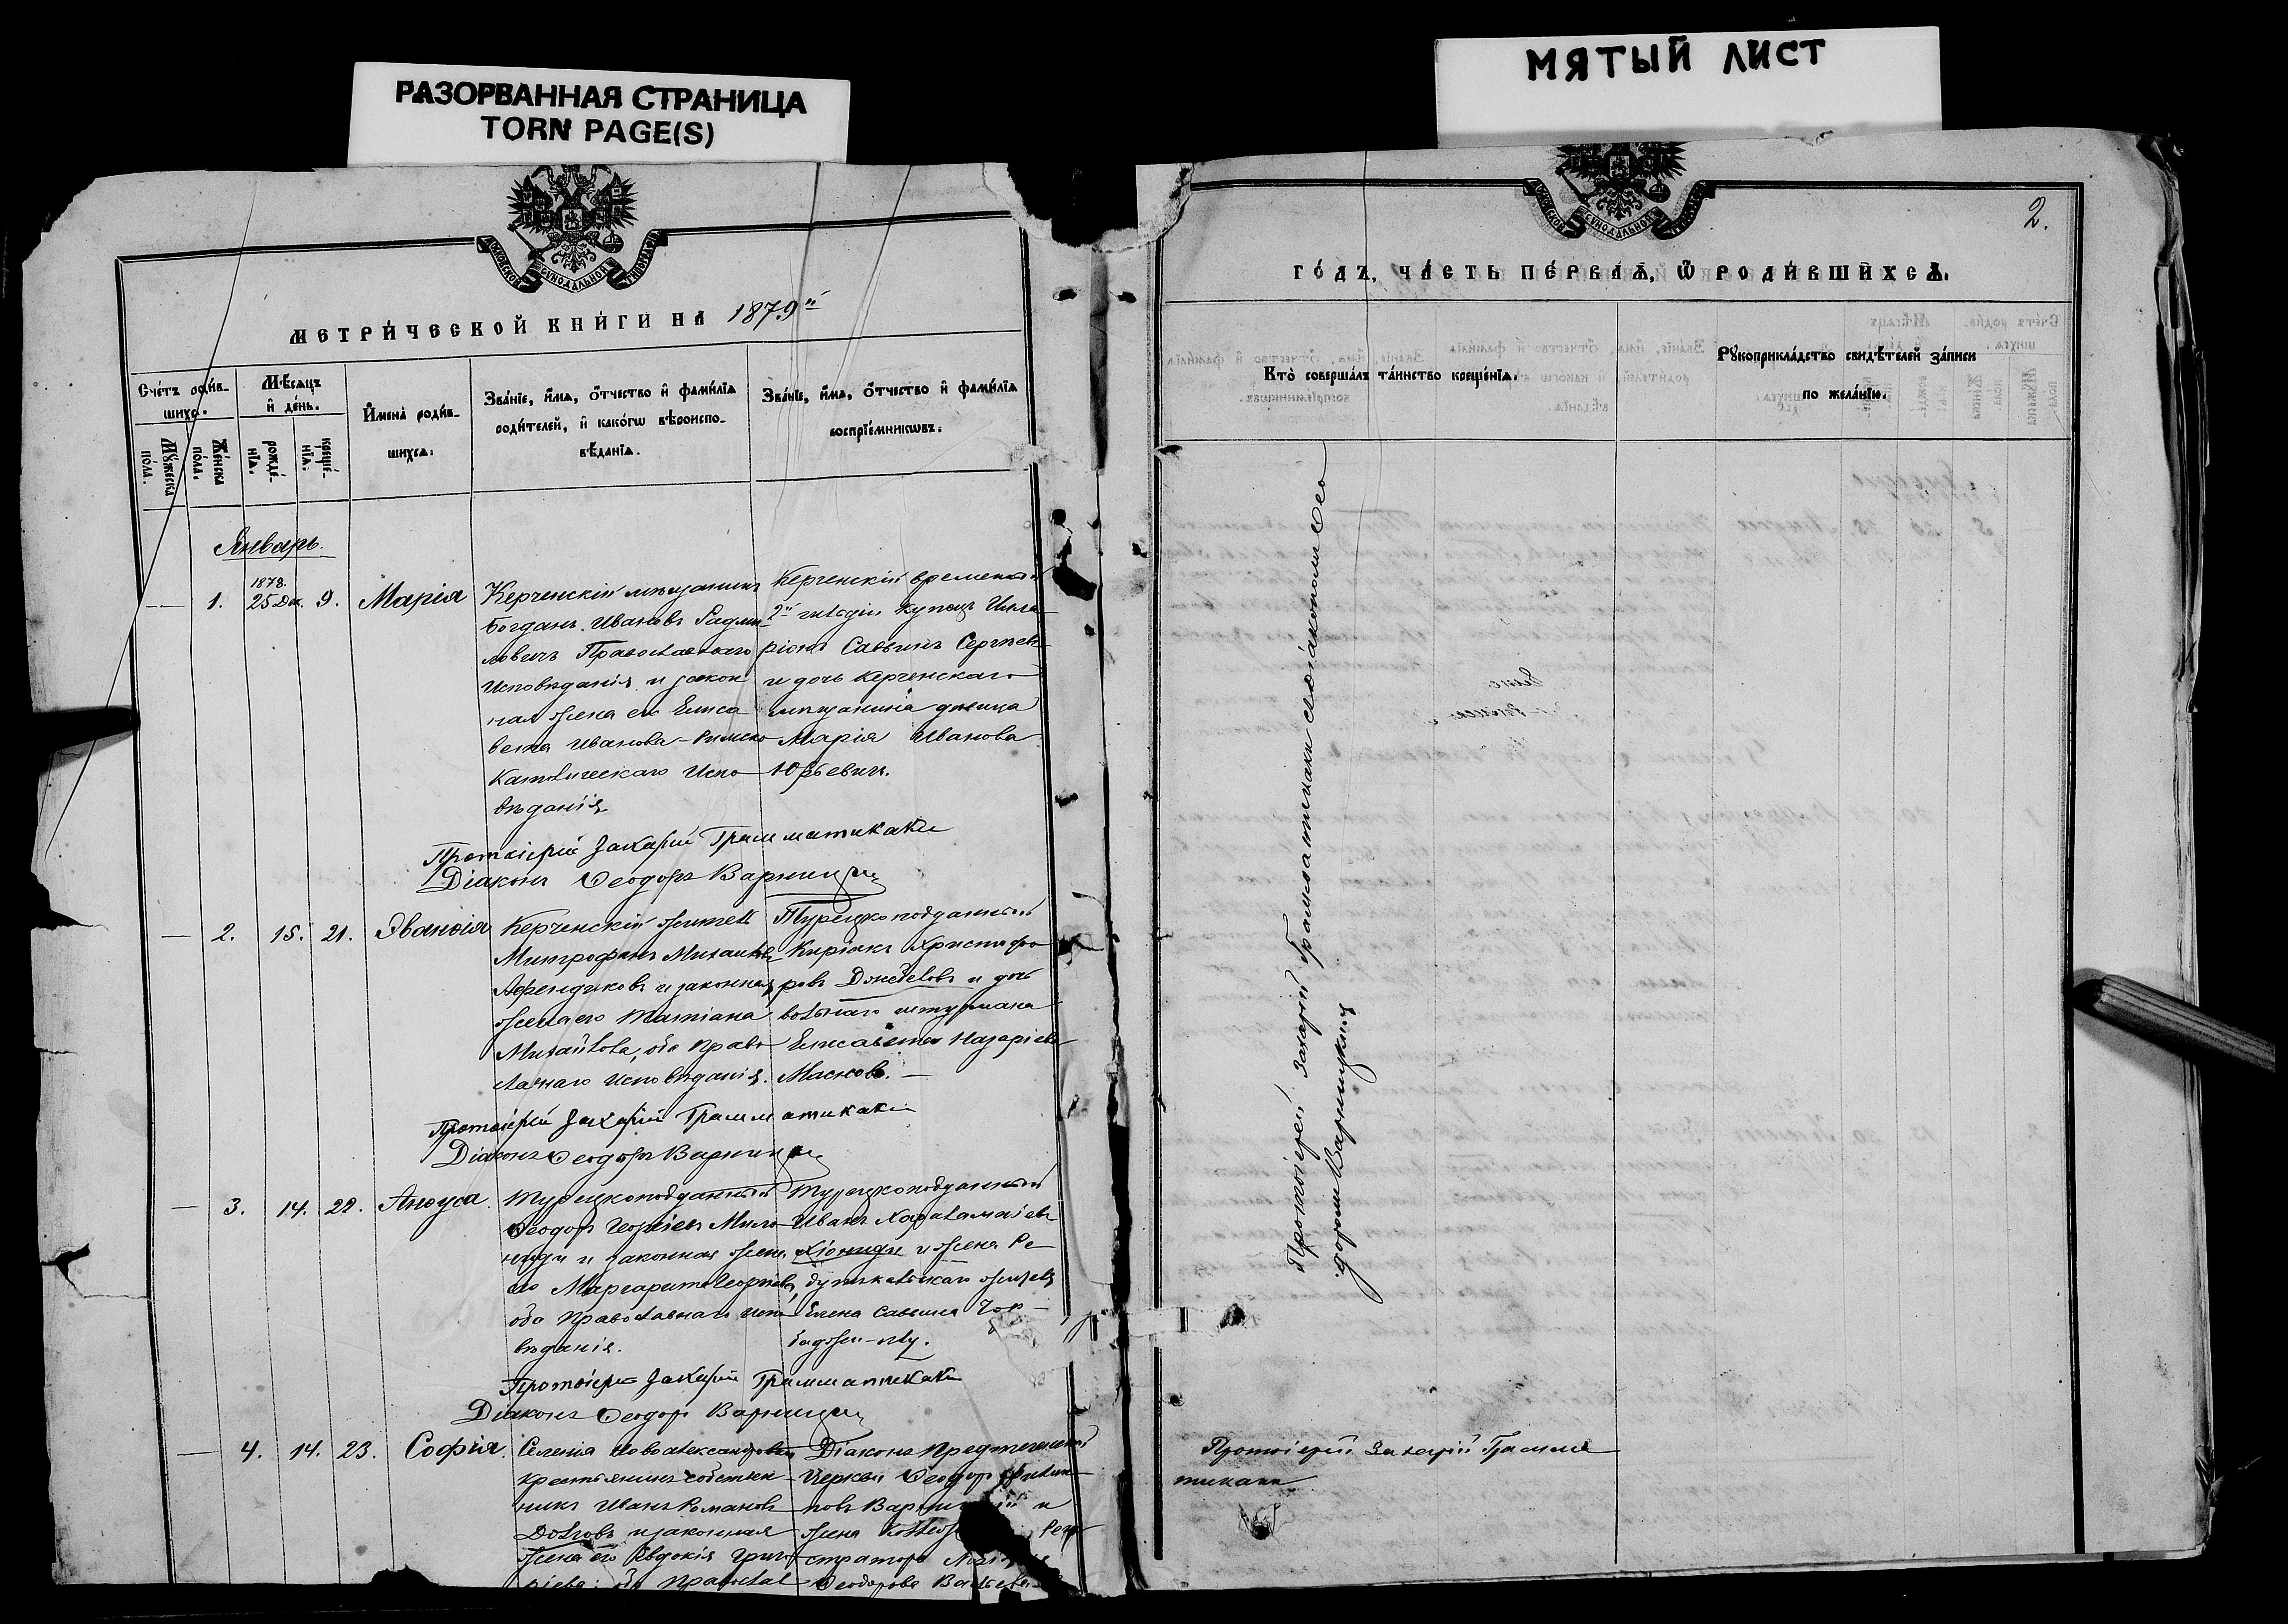 РАЗОРВАННАЯ СТРАНИЦА
TORN PAGE(S)
МЯТЫЙ ЛИСТ
МОСКОВСКОЙ СѴНОДАЛЬНОЙ ТИПОГРАФІИ
МЕТРИ́ЧЕСКОЙ КНИ́ГИ НА 1879й
Сче́тъ роди́в-
шихс.
Мѣ́сяцъ
и҆ де́нь.
Мꙋ́жеска
по́ла.
Же́нска
по́ла.
рожде́-
нїѧ.
креще́-
нїѧ.
И҆мена̀ роди́в-
шихсѧ.
Зва́нїе, и҆́мѧ, ѻ҆́тчество и҆ фами́лїѧ
роди́телей, и҆ како́гѡ вѣроиспо-
вѣ́данїѧ.
Зва́нїе, и҆́мѧ, ѻ҆́тчество и҆ фами́лїѧ
воспрїе́мникѡвъ.
Январь.
1878.
— 1. 25 Дек. 9. Марія
Керченскій мѣщанинъ
Богданъ Ивановъ Радми
ловичъ Православнаго
Исповѣданія и закон
ная жена его Елиса
вета Иванова - Римско
Католическаго Испо
вѣданія
Керченскій временный
2й гильдіи купецъ Илла
ріонъ Саввинъ Сергѣевъ
и дочь Керченскаго
мѣщанина дѣвица
Марія Иванова
Юрьевичъ.
Протоіерей Захарій Грамматикаки
Діаконъ Ѳеодоръ Варницкій
— 2. 15. 21. Эванѳія
Керченскій житель
Митрофанъ Михайловъ
Аѳендиковъ и законная
жена его Татіана
Михайлова, оба Право
славнаго Исповѣданія.
Турецкоподданный
Киріакъ Христофо
ровъ и дочь
вольнаго штурмана
Елисавета Назаріева
Масковъ. —
Протоіерей Захарій Грамматикаки
Діаконъ Ѳеодоръ Варницкій
— 3. 14. 22. Анѳуса.
Турецкоподданный
Ѳеодоръ Георгіевъ Мило
ниди и законная жена
его Маргарита Георгіева,
оба Православнаго испо
вѣданія.
Турецкоподданный
Иванъ Харалампіевъ
Хіониди и жена Ре
дутъ-кальскаго жителя
Елена Саввина
Протоіерей Захарій Грамматикаки
Діаконъ Ѳеодоръ Варницкій
— 4. 14. 23. Софія.
Селенія Новоалександровки
крестьянинъ собствен
никъ Иванъ Романовъ
Долговъ и законная
жена его Евдокія Григо
ріева; оба Православ
Діаконъ Предтеченской
Церкви Ѳеодоръ Филип
повъ Варницкій и
жена Реги
стратора
Ѳеодорова
2.
ГО́ДЪ, ЧА́СТЬ ПЕ́РВАѦ, Ѽ РОДИ́ВШИХСѦ.
Кто̀ соверша́лъ та́инство креще́нїѧ.
Рꙋкоприкла́дство свидѣ́телей за́писи
по жела́нїю.
Протоіерей Захарій Грамматикаки съ діакономъ Ѳео
доромъ Варницкимъ
Протоіерей Захарій Грамма
тикаки